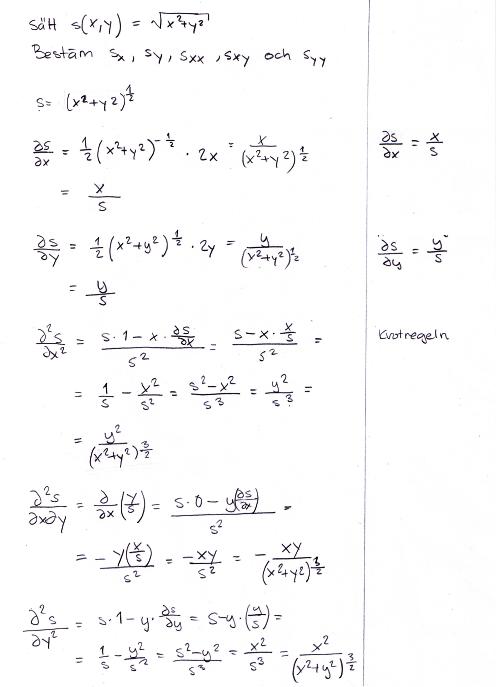 Sätt s(x,y) = √(x²+y²)
Bestäm sx, sy, sxx, sxy och syy
s = (x²+y²)^(1/2)
∂s/∂x = 1/2 (x²+y²)^(-1/2) · 2x = x/(x²+y²)^(1/2)   ∂s/∂x = x/s
= x/s
∂s/∂y = 1/2 (x²+y²)^(1/2) · 2y = y/(x²+y²)^(1/2)   ∂s/∂y = y/s
= y/s
∂²s/∂x² = (s·1-x·∂s/∂x)/s² = (s-x·x/s)/s² =   Kvotregeln
= 1/s - x²/s² = (s²-x²)/s³ = y²/s³ =
= y²/(x²+y²)^(3/2)
∂²s/∂x∂y = ∂/∂x (y/s) = (s·0-y(∂s/∂x))/s² =
= -y(x/s)/s² = -xy/s² = - xy/(x²+y²)^(3/2)
∂²s/∂y² = s·1-y·∂s/∂y = s-y·(y/s) =
= 1/s - y²/s² = (s²-y²)/s³ = x²/s³ = x²/(x²+y²)^(3/2)